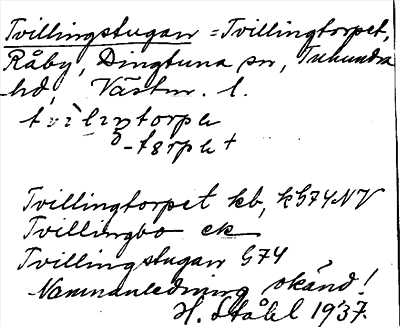 Tvillingstugan = Tvillingtorpet,
Råby, Dingtuna sn, Tuhundra
hd, Västm. l.
Tvillingtorpet kb, kG74NV
Tvillingbo ek
Tvillingstugan G74
Namnanledning okänd!
H. Ståhl 1937.